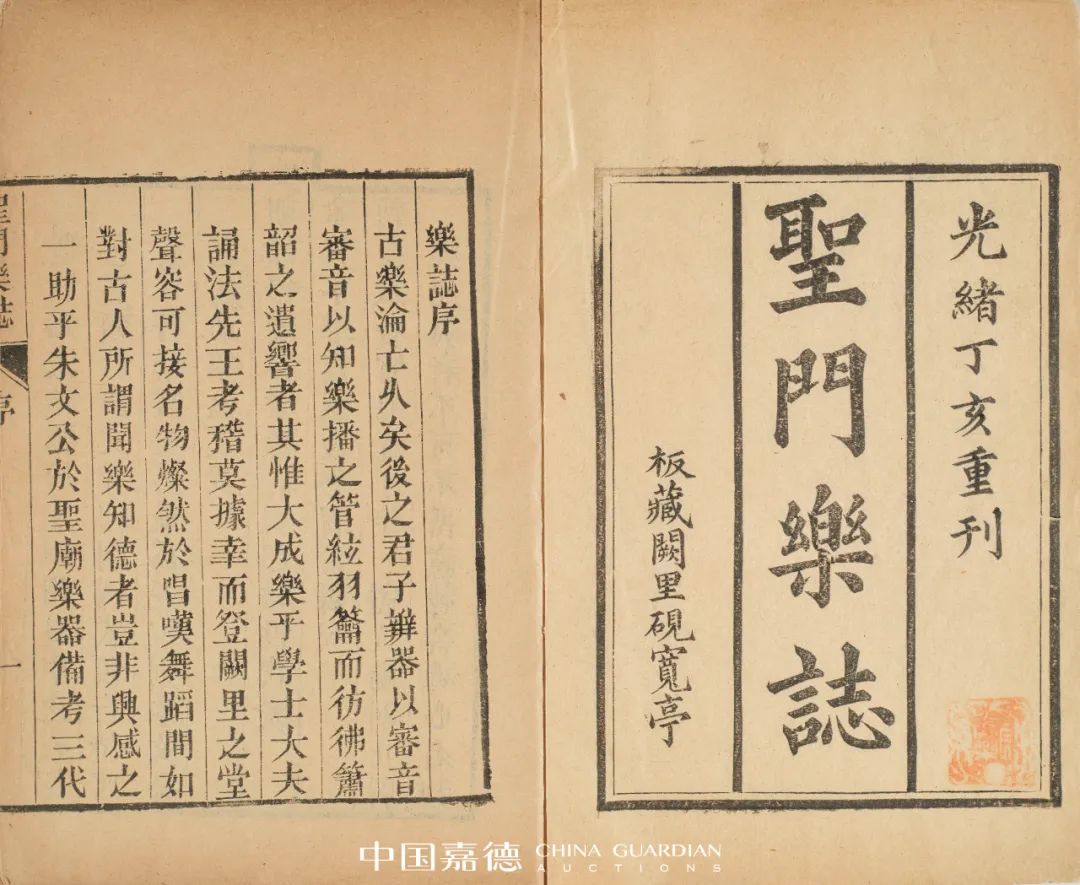 光緒丁亥重刊
聖門樂誌
板藏闕里硯寬亭
樂誌序
古樂淪亡乆矣後之君子辨器以審音
審音以知樂播之管絃羽籥而彷彿簫
韶之遺響者其惟大成樂乎學士大夫
誦法先王考稽莫據幸而登闕里之堂
聲容可接名物燦然於唱嘆舞蹈間如
對古人所謂聞樂知德者豈非興感之
一助乎朱文公於聖廟樂器備考三代
聖門樂誌
序
一
中国嘉德 CHINA GUARDIAN
AUCTIONS